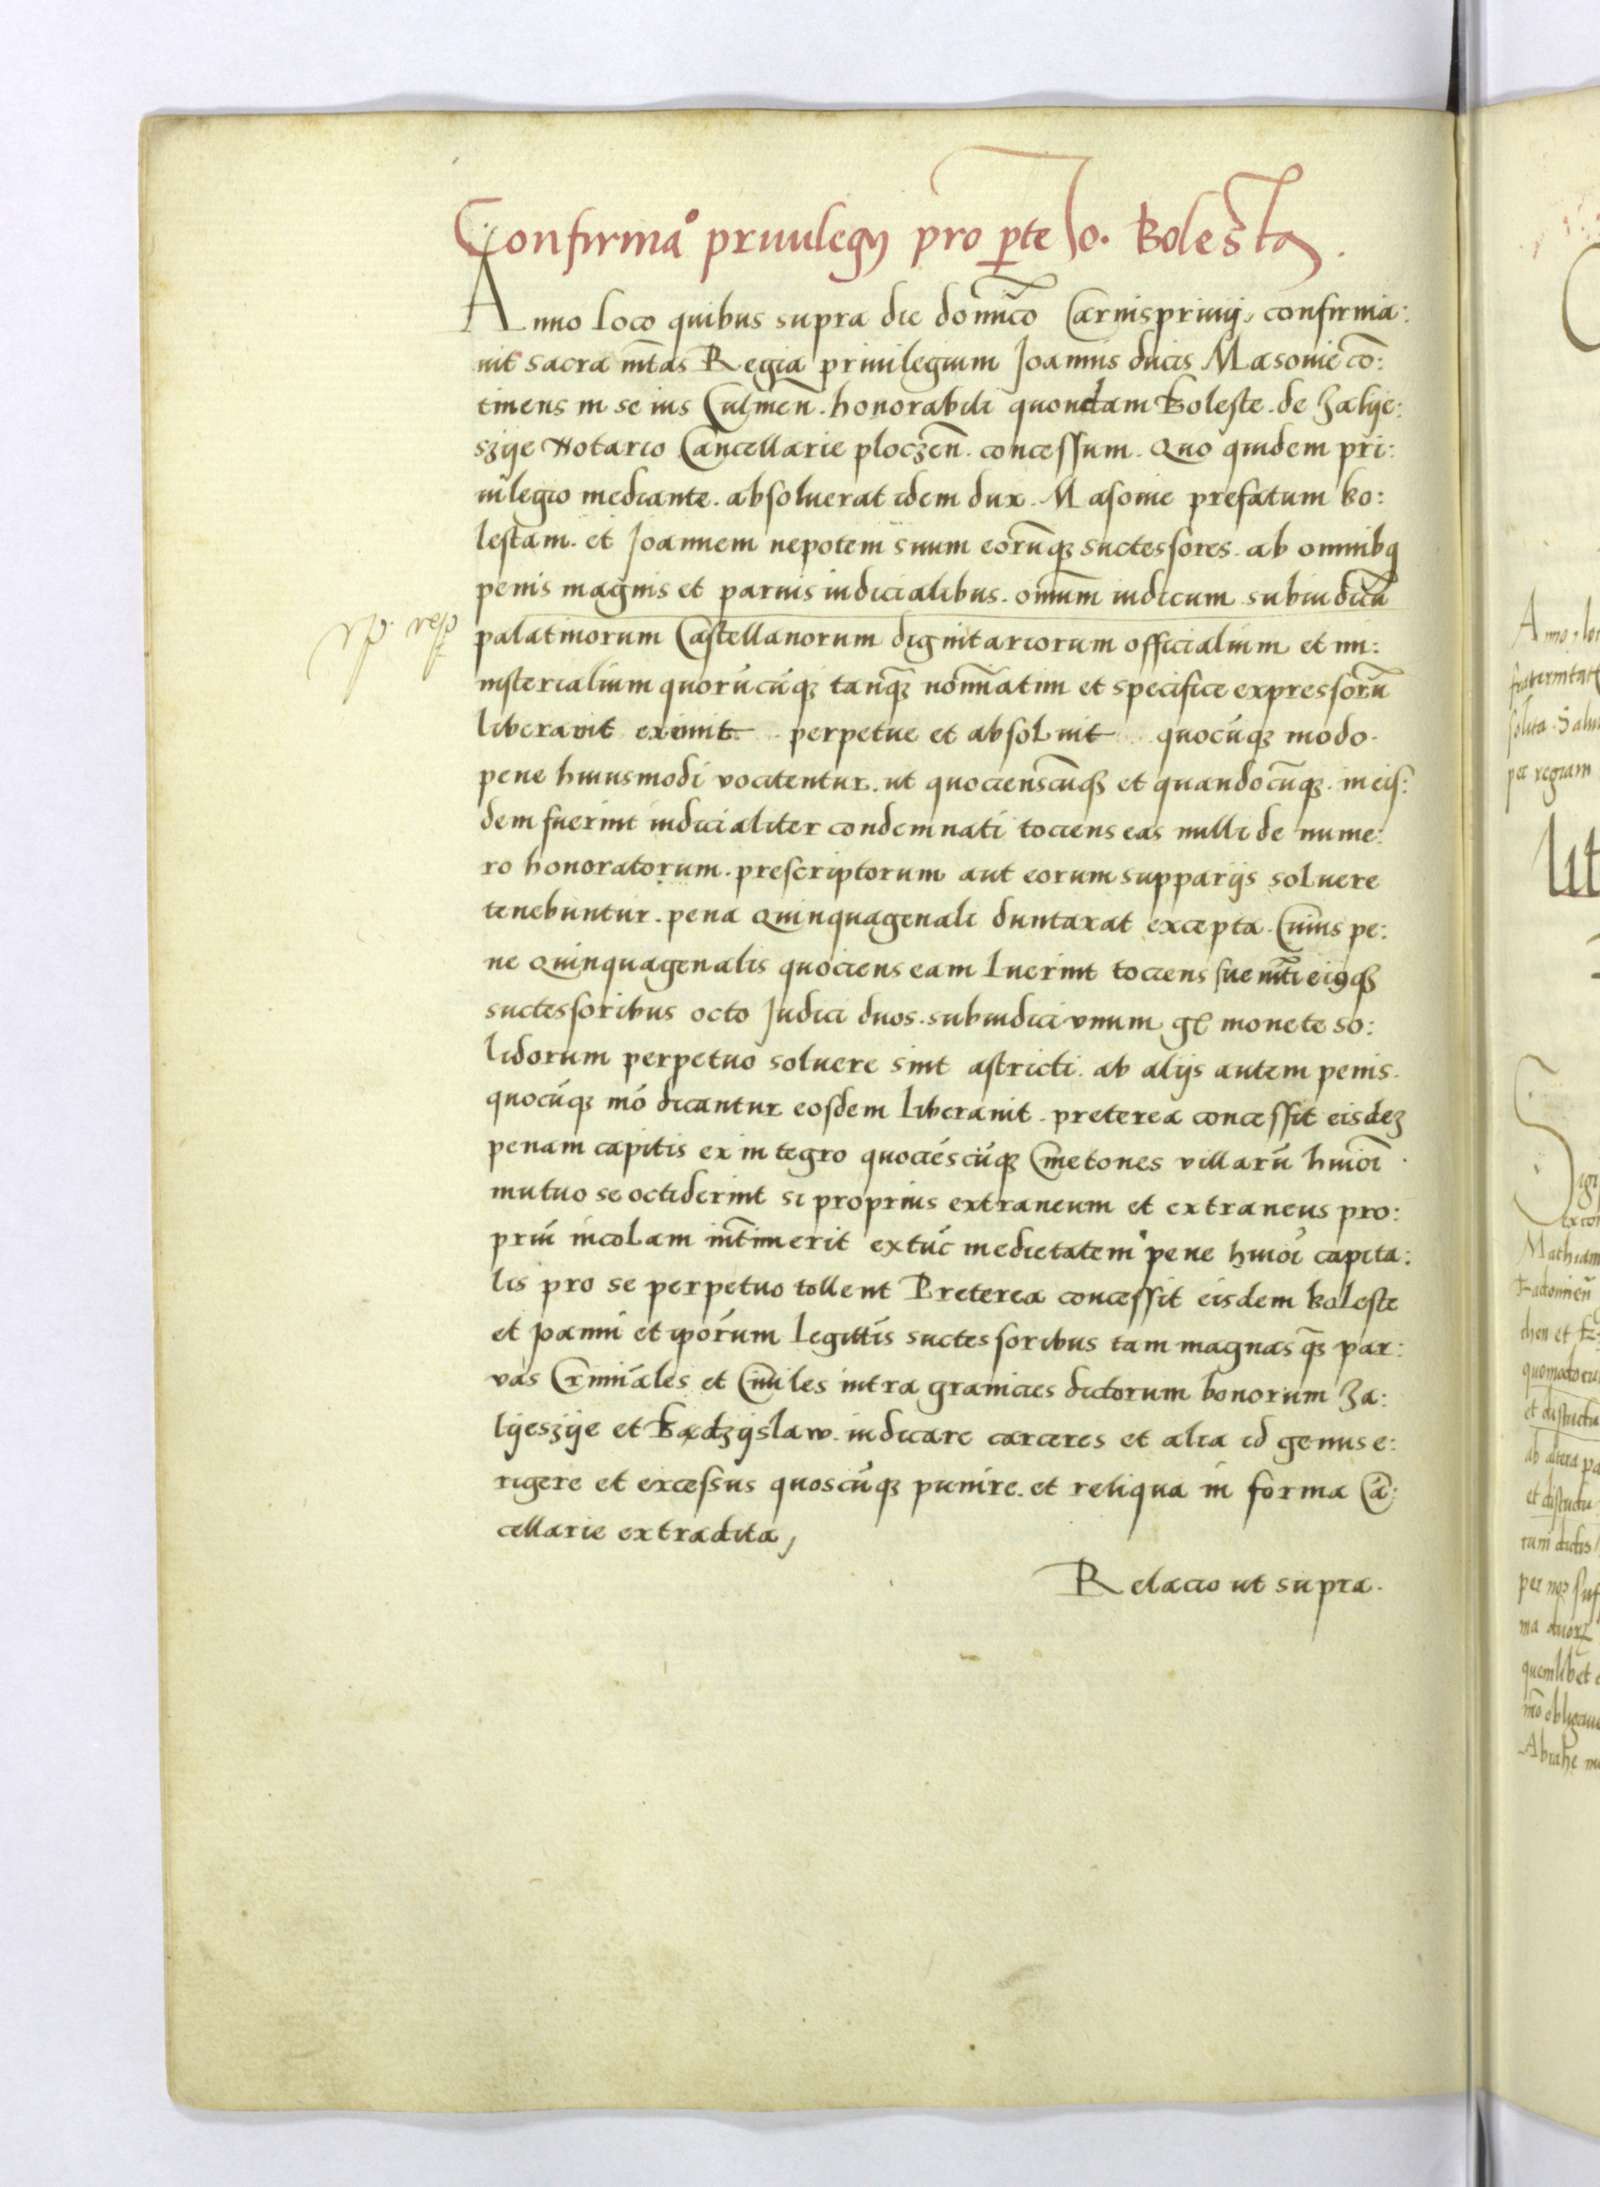 Confirmaº priuilegij pro pte Io. Bolesta.
Anno loco quibus supra die domico Carnispriuij, confirma:
uit sacra mtas Regia priuilegium Joannis ducis Masouie co:
tinens in se ius Culmen. honorabili quondam Boleste. de Zalye:
szije Notario Cancellarie ploczen. concessum. Quo quidem pri:
uilegio mediante. absoluerat idem dux. Masouie prefatum bo:
lestam. et Joannem nepotem suum eorumqz successores. ab omnibq
penis magnis et paruis iudicialibus. omum iudicum subiudicu
palatinorum Castellanorum dignitariorum officialium et mi:
nisterialium quorucuqz tanqz nominatim et specifice expressoru
liberauit eximit perpetue et absoluit quocuqz modo.
pene huiusmodi vocitentur. ut quocienscuqz et quandocuqz. in eis:
dem fuerint iudicialiter condemnati tociens eas nulli de nume:
ro honoratorum. prescriptorum aut eorum supparijs soluere
tenebuntur. pena Quinquagenali duntaxat excepta. Cuius pe:
ne Quinquagenalis quociens eam luerint tociens sue mti eiqz
successoribus octo Judici duos. subiudici vnum gl monete so:
lidorum perpetuo soluere sint astricti. ab alijs autem penis.
quocuqz mo dicantur eosdem liberauit. preterea concessit eisdez
penam capitis ex integro quociescuqz Cmetones villaru huioi
mutuo se occiderint si proprius extraneum et extraneus pro:
priu incolam intimerit extuc medietatem pene huioi capita:
lis pro se perpetuo tollent Preterea concessit eisdem boleste
et joanni et iporum legittis successoribus tam magnas qz par:
vas Criminales et Ciuiles intra granicies dictorum bonorum Za:
lyeszije et Bądzyslaw. iudicare carceres et alia id genus e:
rigere et excessus quoscuqz punire. et reliqua in forma Ca:
cellarie extradita,
Relacio ut supra.